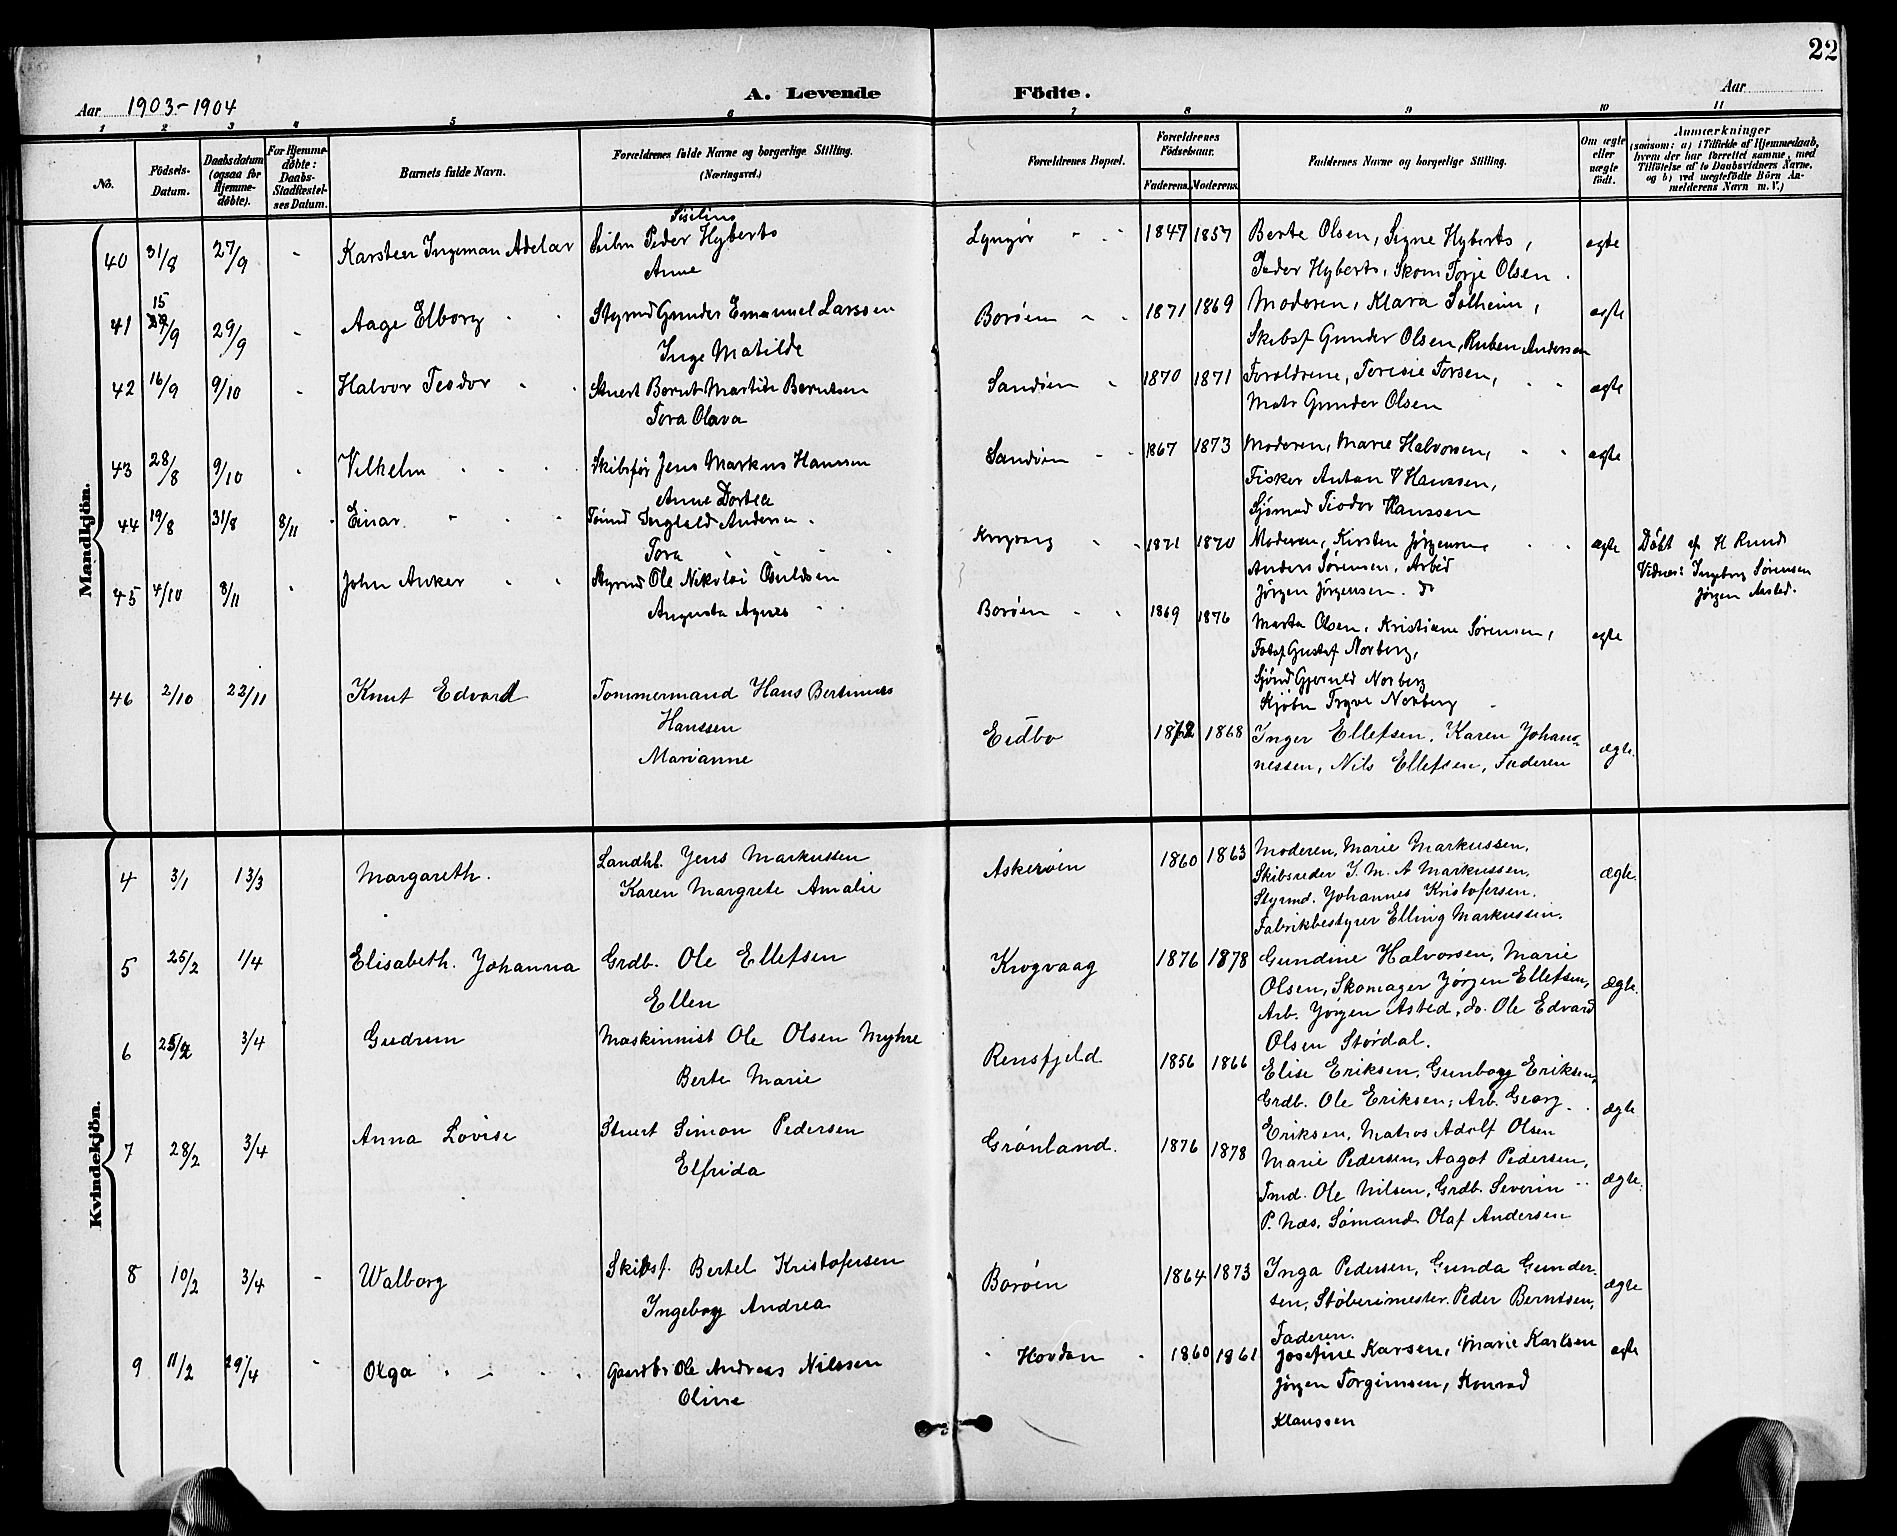 22
Aar 1903-1904 A. Levende Födte. Aar
1 2 3 4 5 6 7 8 9 10 11
No. Födsels-Datum. Daabsdatum (ogsaa for Hjemme-døbte). For Hjemme-døbte: Daabs-Stadfæstel-ses Datum. Barnets fulde Navn. Forældrenes fulde Navne og borgerlige Stilling. (Næringsvei.) Forældrenes Bopæl. Forældrenes Födselsaar. Faderens. Moderens. Faddernes Navne og borgerlige Stilling. Om ægte eller uægte født. Anmærkninger (saasom: a) i Tilfælde af Hjemmedaab, hvem der har forrettet samme, med Tilföielse af to Daabsvidners Navne, og b) ved uægtefødte Börn An-melderens Navn m. V.)
Mandkjön.
40 31/8 27/9 - Karsten Ingeman Adelar
Peder Hyberts
Anne
Lyngør 1847 1857 Berte Olsen, Signe Hyberts,
Peder Hyberts, Skom Torje Olsen. ægte
41 15/9 29/9 - Aage Elborg Styrmd Gunder Emanuel Larssen
Inge Matilde
Borøen 1871 1869 Moderen, Klara Solheim,
Skibsf Gunder Olsen, Ruben Andersen ægte
42 16/9 9/10 - Halvor Teodor Stuert Bernt Martin Berntsen
Tora Olava
Sandøen 1870 1871 Foraldrene, Toresie Torsen,
Matr Gunder Olsen ægte
43 28/8 9/10 - Vilhelm Skibsfør Jens Markus Hanssen
Anne Dortea
Sandøen 1867 1873 Moderen, Marie Halvorsen,
Fisker Anton V Hanssen,
Sjømad Teodor Hanssen ægte
44 19/8 31/8 8/11 Einar Tømd Ingvald Andersen
Tora
Krogvaag 1871 1870 Moderen, Kirsten Jørgensen,
Anders Sørensen, Arbed
Jørgen Jørgensen. do ægte
Døbt af H Rund
Vidner: Ingeborg Sørensen
Jørgen Aasted.
45 4/10 8/11 - John Anker Styrmd Ole Nikolai Osuldsen
Augusta Agnes
Borøen 1869 1876 Marta Olsen, Kristiane Sørensen,
Gustaf Norberg,
Sjømd Gjeruld Norberg
Kjøbm Trygve Norberg ægte
46 2/10 22/11 Knut Edvard Tømmermand Hans Bertinius
Hanssen
Marianne
Eidbo 1872 1868 Inger Ellefsen, Karen Johan-
nessen, Nils Ellefsen, Faderen ægte.
Kvindekjön.
4 3/1 13/3 Margareth. Landhl. Jens Markussen
Karen Margrete Amalie
Askerøen 1860 1863 Moderen, Marie Markussen,
Skibsreder J. M. A Markussen,
Styrmd. Johannes Kristofersen.
Fabrikbestyrer Elling Markussen. ægte.
5 25/2 1/4 Elisabeth. Johanna Grdb. Ole Ellefsen
Ellen
Krogvaag 1876 1878 Gundine Halvorsen, Marie
Olsen, Skomager Jørgen Ellefsen,
Arb. Jørgen Asted, do. Ole Edvard
Olsen Størdal. Ægte.
6 25/2 3/4 Gudrun Maskinnist Ole Olsen Myhre
Berte Marie
Rensfjeld 1856 1866 Elise Eriksen, Gunborg Eriksen,
Grdb. Ole Eriksen, Arb. Georg
Eriksen, Matros Adolf Olsen ægte
7 28/2 3/4 Anna Lovise Stuert Simon Pedersen
Elfrida
Grønland. 1876 1878 Marie Pedersen, Aagot Pedersen,
Tmd. Ole Nilsen, Grdb. Severin
P. Næs, Sømand Olaf Andersen ægte.
8 10/2 3/4 - Walborg Skibsf. Bertel Kristofersen
Ingeborg Andrea
Borøen 1864 1873 Inga Pedersen, Gunda Gunder-
sen, Støberimester Peder Berntsen,
Faderen. ægte
9 11/2 29/4 - Olga Gaardbr Ole Andreas Nilssen
Oline
Hovdan 1860 1861 Josefine Karsen, Marie Karlsen
Jørgen Torgimsen, Konrad
Klaussen ægte